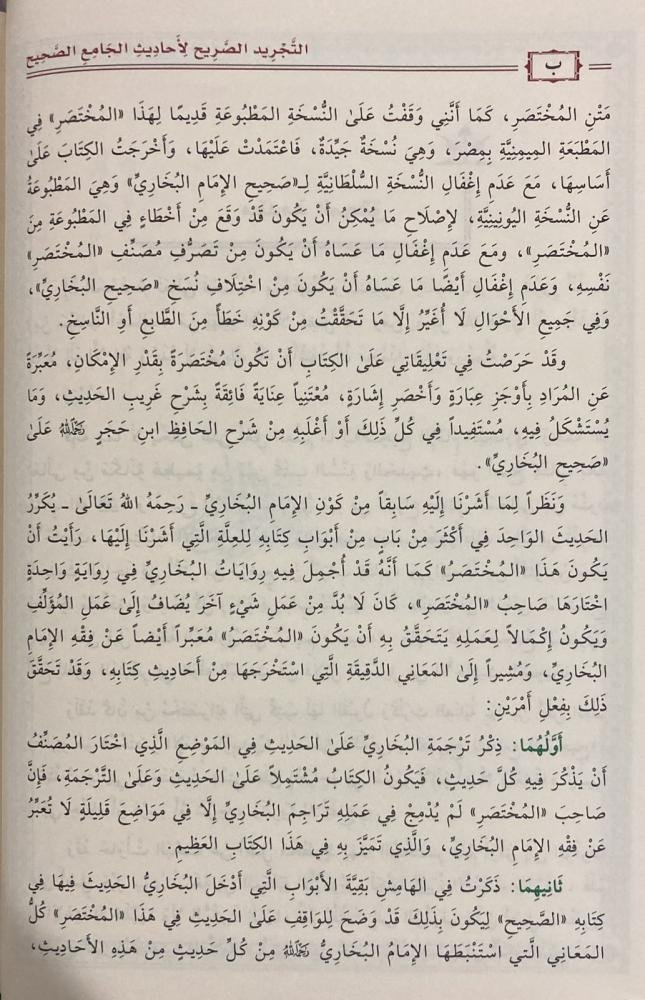 التَّجْرِيد الصَّرِيح لِأَحَادِيثِ الجَامِعِ الصَّحِيح
ب
مَتْنِ المُخْتَصَرِ، كَمَا أَنَّنِي وَقَفْتُ عَلَىٰ النُّسْخَةِ المَطْبُوعَةِ قَدِيمًا لِهَذَا «المُخْتَصَرِ» فِي
المَطْبَعَةِ المِيمَنِيَّةِ بِمِصْرَ، وَهِيَ نُسْخَةٌ جَيِّدَةٌ، فَاعْتَمَدْتُ عَلَيْهَا، وَأَخْرَجَتُ الكِتَابَ عَلَىٰ
أَسَاسِهَا، مَعَ عَدَمِ إِغْفَالِ النُّسْخَةِ السُّلْطَانِيَّةِ لِـ«صَحِيحِ الإِمَامِ البُخَارِيِّ» وَهِيَ المَطْبُوعَةُ
عَنِ النُّسْخَةِ اليُونِينِيَّةِ، لِإِصْلَاحِ مَا يُمْكِنُ أَنْ يَكُونَ قَدْ وَقَعَ مِنْ أَخْطَاءٍ فِي المَطْبُوعَةِ مِنَ
«المُخْتَصَرِ»، ومَعَ عَدَمِ إِغْفَالِ مَا عَسَاهُ أَنْ يَكُونَ مِنْ تَصَرُّفِ مُصَنِّفِ «المُخْتَصَرِ»
نَفْسِهِ، وَعَدَمِ إِغْفَالِ أَيْضًا مَا عَسَاهُ أَنْ يَكُونَ مِنْ اخْتِلَافِ نُسَخِ «صَحِيحِ البُخَارِيِّ»،
وَفِي جَمِيعِ الأَحْوَالِ لَا أُغَيِّرُ إِلَّا مَا تَحَقَّقْتُ مِنْ كَوْنِهِ خَطَأً مِنَ الطَّابِعِ أَوِ النَّاسِخِ.
وقَدْ حَرَصْتُ فِي تَعْلِيقَاتِي عَلَىٰ الكِتَابِ أَنْ تَكُونَ مُخْتَصَرَةً بِقَدْرِ الإِمْكَانِ، مُعَبِّرَةً
عَنِ المُرَادِ بِأَوْجَزِ عِبَارَةٍ وَأَخْصَرِ إِشَارَةٍ، مُعْتَنِياً عِنَايَةً فَائِقَةً بِشَرْحِ غَرِيبِ الحَدِيثِ، وَمَا
يُسْتَشْكَلُ فِيهِ، مُسْتَفِيداً فِي كُلِّ ذَلِكَ أَوْ أَغْلَبِهِ مِنْ شَرْحِ الحَافِظِ ابنِ حَجَرٍ رَحِمَهُ اللهُ عَلَىٰ
«صَحِيحِ البُخَارِيِّ».
وَنَظَراً لِمَا أَشَرْنَا إِلَيْهِ سَابِقاً مِنْ كَوْنِ الإِمَامِ البُخَارِيِّ ـ رَحِمَهُ اللهُ تَعَالَىٰ ـ يُكَرِّرُ
الحَدِيثَ الوَاحِدَ فِي أَكْثَرَ مِنْ بَابٍ مِنْ أَبْوَابِ كِتَابِهِ لِلعِلَّةِ الَّتِي أَشَرْنَا إِلَيْهَا، رَأَيْتُ أَنْ
يَكُونَ هَذَا «المُخْتَصَرُ» كَمَا أَنَّهُ قَدْ أُجْمِلَ فِيهِ رِوَايَاتُ البُخَارِيِّ فِي رِوَايَةٍ وَاحِدَةٍ
اخْتَارَهَا صَاحِبُ «المُخْتَصَرِ»، كَانَ لَا بُدَّ مِنْ عَمَلِ شَيْءٍ آخَرَ يُضَافُ إِلَىٰ عَمَلِ المُؤَلِّفِ
وَيَكُونُ إِكْمَالاً لِعَمَلِهِ يَتَحَقَّقُ بِهِ أَنْ يَكُونَ «المُخْتَصَرُ» مُعَبِّراً أَيْضاً عَنْ فِقْهِ الإِمَامِ
البُخَارِيِّ، وَمُشِيراً إِلَىٰ المَعَانِي الدَّقِيقَةِ الَّتِي اسْتَخْرَجَهَا مِنْ أَحَادِيثِ كِتَابِهِ، وَقَدْ تَحَقَّقَ
ذَلِكَ بِفِعْلِ أَمْرَيْنِ:
أَوَّلُهُمَا: ذِكْرُ تَرْجَمَةِ البُخَارِيِّ عَلَىٰ الحَدِيثِ فِي المَوْضِعِ الَّذِي اخْتَارَ المُصَنِّفُ
أَنْ يَذْكُرَ فِيهِ كُلَّ حَدِيثٍ، فَيَكُونُ الكِتَابُ مُشْتَمِلاً عَلَىٰ الحَدِيثِ وَعَلَىٰ التَّرْجَمَةِ، فَإِنَّ
صَاحِبَ «المُخْتَصَرِ» لَمْ يُدْمِجْ فِي عَمَلِهِ تَرَاجِمَ البُخَارِيِّ إِلَّا فِي مَوَاضِعَ قَلِيلَةٍ لَا تُعَبِّرُ
عَنْ فِقْهِ الإِمَامِ البُخَارِيِّ، وَالَّذِي تَمَيَّزَ بِهِ فِي هَذَا الكِتَابِ العَظِيمِ.
ثَانِيهِمَا: ذَكَرْتُ فِي الهَامِشِ بَقِيَّةَ الأَبْوَابِ الَّتِي أَدْخَلَ البُخَارِيُّ الحَدِيثَ فِيهَا فِي
كِتَابِهِ «الصَّحِيحِ» لِيَكُونَ بِذَلِكَ قَدْ وَضَحَ لِلوَاقِفِ عَلَىٰ الحَدِيثِ فِي هَذَا «المُخْتَصَرِ» كُلُّ
المَعَانِي الَّتي اسْتَنْبَطَهَا الإِمَامُ البُخَارِيُّ رَحِمَهُ اللهُ مِنْ كُلِّ حَدِيثٍ مِنْ هَذِهِ الأَحَادِيثِ،